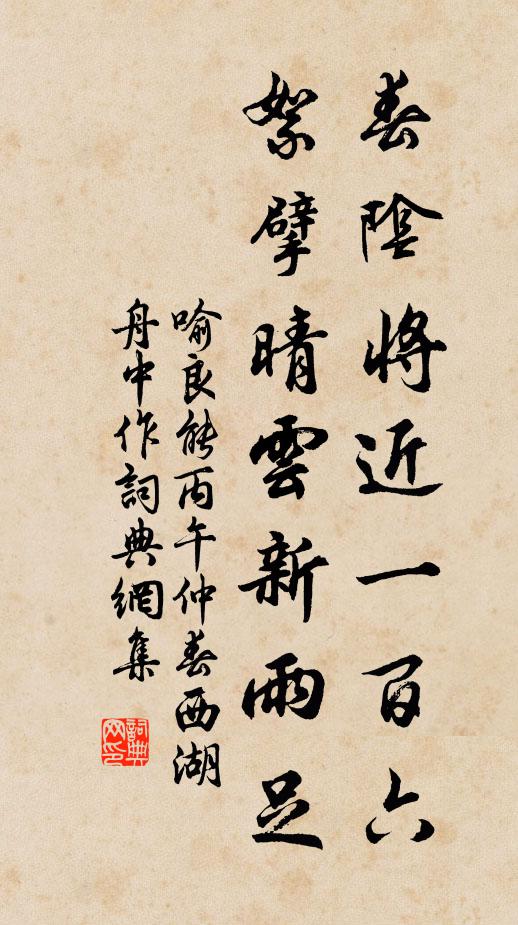 春陰將近一百六
絮擘晴雲新雨足
喻良能丙午仲春西湖
舟中作詞典網集
詞典網印